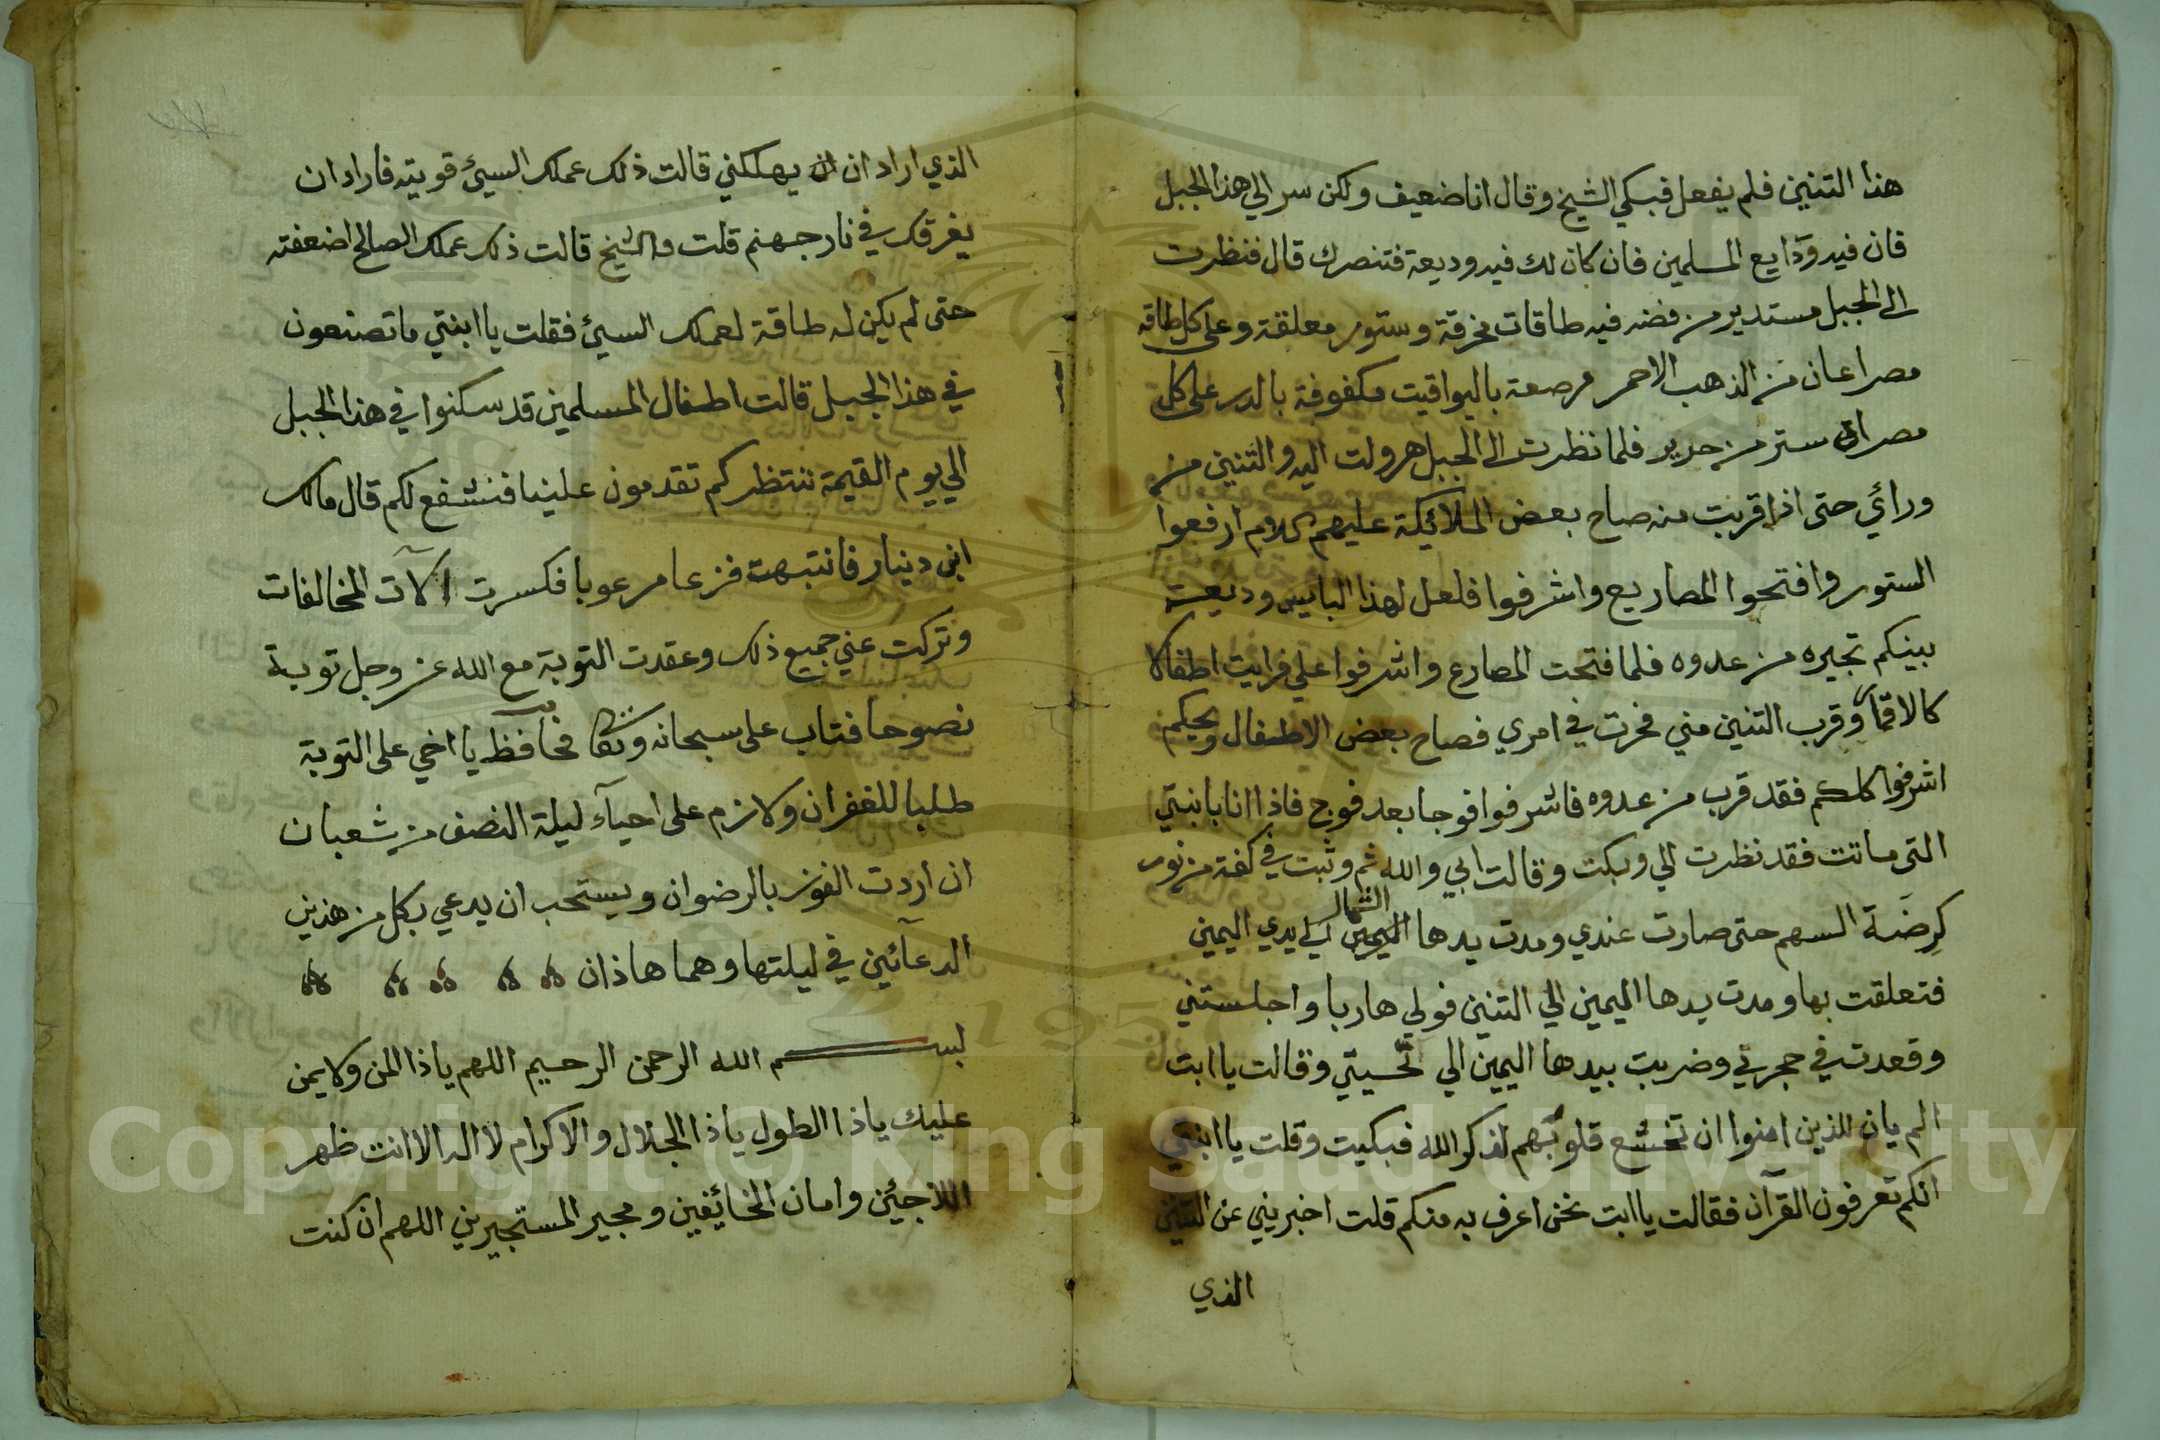 هذا التنين فلم يفعل فبكي الشيخ وقال انا ضعيف ولكن سر الي هذا الجبل
فان فيه ودايع المسلمين فان كان لك فيه وديعة فتنصرك قال فنظرت
الى الجبل مستدير من فضه فيه طاقات مخرقة وستور معلقة وعلى كل طاقه
مصراعان من الذهب الاحمر مرصعة باليواقيت مكفوفة بالدر على كل
مصراع ستر من حرير فلما نظرت الى الجبل هرولت اليه والتنين من
ورائي حتى اذا قربت منه صاح بعض الملائيكة عليهم السلام ارفعوا
الستور وافتحوا المصاريع واشرفوا فلعل لهذا البايس وديعة
بينكم تجيره من عدوه فلما فتحت المصارع واشرفوا علي فرايت اطفالا
كالاقمار وقرب التنين مني فحرت في امري فصاح بعض الاطفال ويحكم
اشرفوا كلكم فقد قرب من عدوه فاشرفوا فوجا بعد فوج فاذا انا بابنتي
التى ماتت فقد نظرت الي وبكت وقالت ابي والله ثم وثبت في كفة من نور
كرضَة السهم حتى صارت عندي ومدت يدها الشمال الي يدي اليمين
فتعلقت بها ومدت يدها اليمين الي التنين فولي هاربا واجلستني
وقعدت في حجرتي وضربت بيدها اليمين الي لحيتي وقالت يا ابت
الم يان للذين امنوا ان تخشع قلوبهم لذكر الله فبكيت وقلت يا ابنتي
انكم تعرفون القرآن فقالت يا ابت نحن اعرف به منكم قلت اخبريني عن التنين
الذي
الذي اراد ان يهلكني قالت ذلك عملك السيئ قويته فاراد ان
يغرقك في نار جهنم قلت والشيخ قالت ذلك عملك الصالح اضعفته
حتى لم يكن له طاقة لعملك السيئ فقلت يا ابنتي ما تصنعون
في هذا الجبل قالت اطفال المسلمين قد سكنوا في هذا الجبل
الي يوم القيمة ننتظركم تقدمون علينا فنشفع لكم قال مالك
ابن دينار فانتبهت فزعا مرعوبا فكسرت الآت المخالفات
وتركت عني جميع ذلك وعقدت التوبة مع الله عز وجل توبة
نصوحا فتاب على سبحانه وتعالى فحافظ يا اخي على التوبة
طلبا للغفران ولازم على احيآء ليلة النصف من شعبان
ان اردت الفوز بالرضوان ويستحب ان يدعي بكل من هذين
الدعآئين في ليلتها وهما هاذان
بسم الله الرحمن الرحيم اللهم يا ذا المن ولا يمن
عليك يا ذا الطول يا ذا الجلال والاكرام لا اله الا انت ظهر
اللاجئين وامان الخائيفين ومجير المستجيرين اللهم ان كنت
Copyright © King Saud University
1957